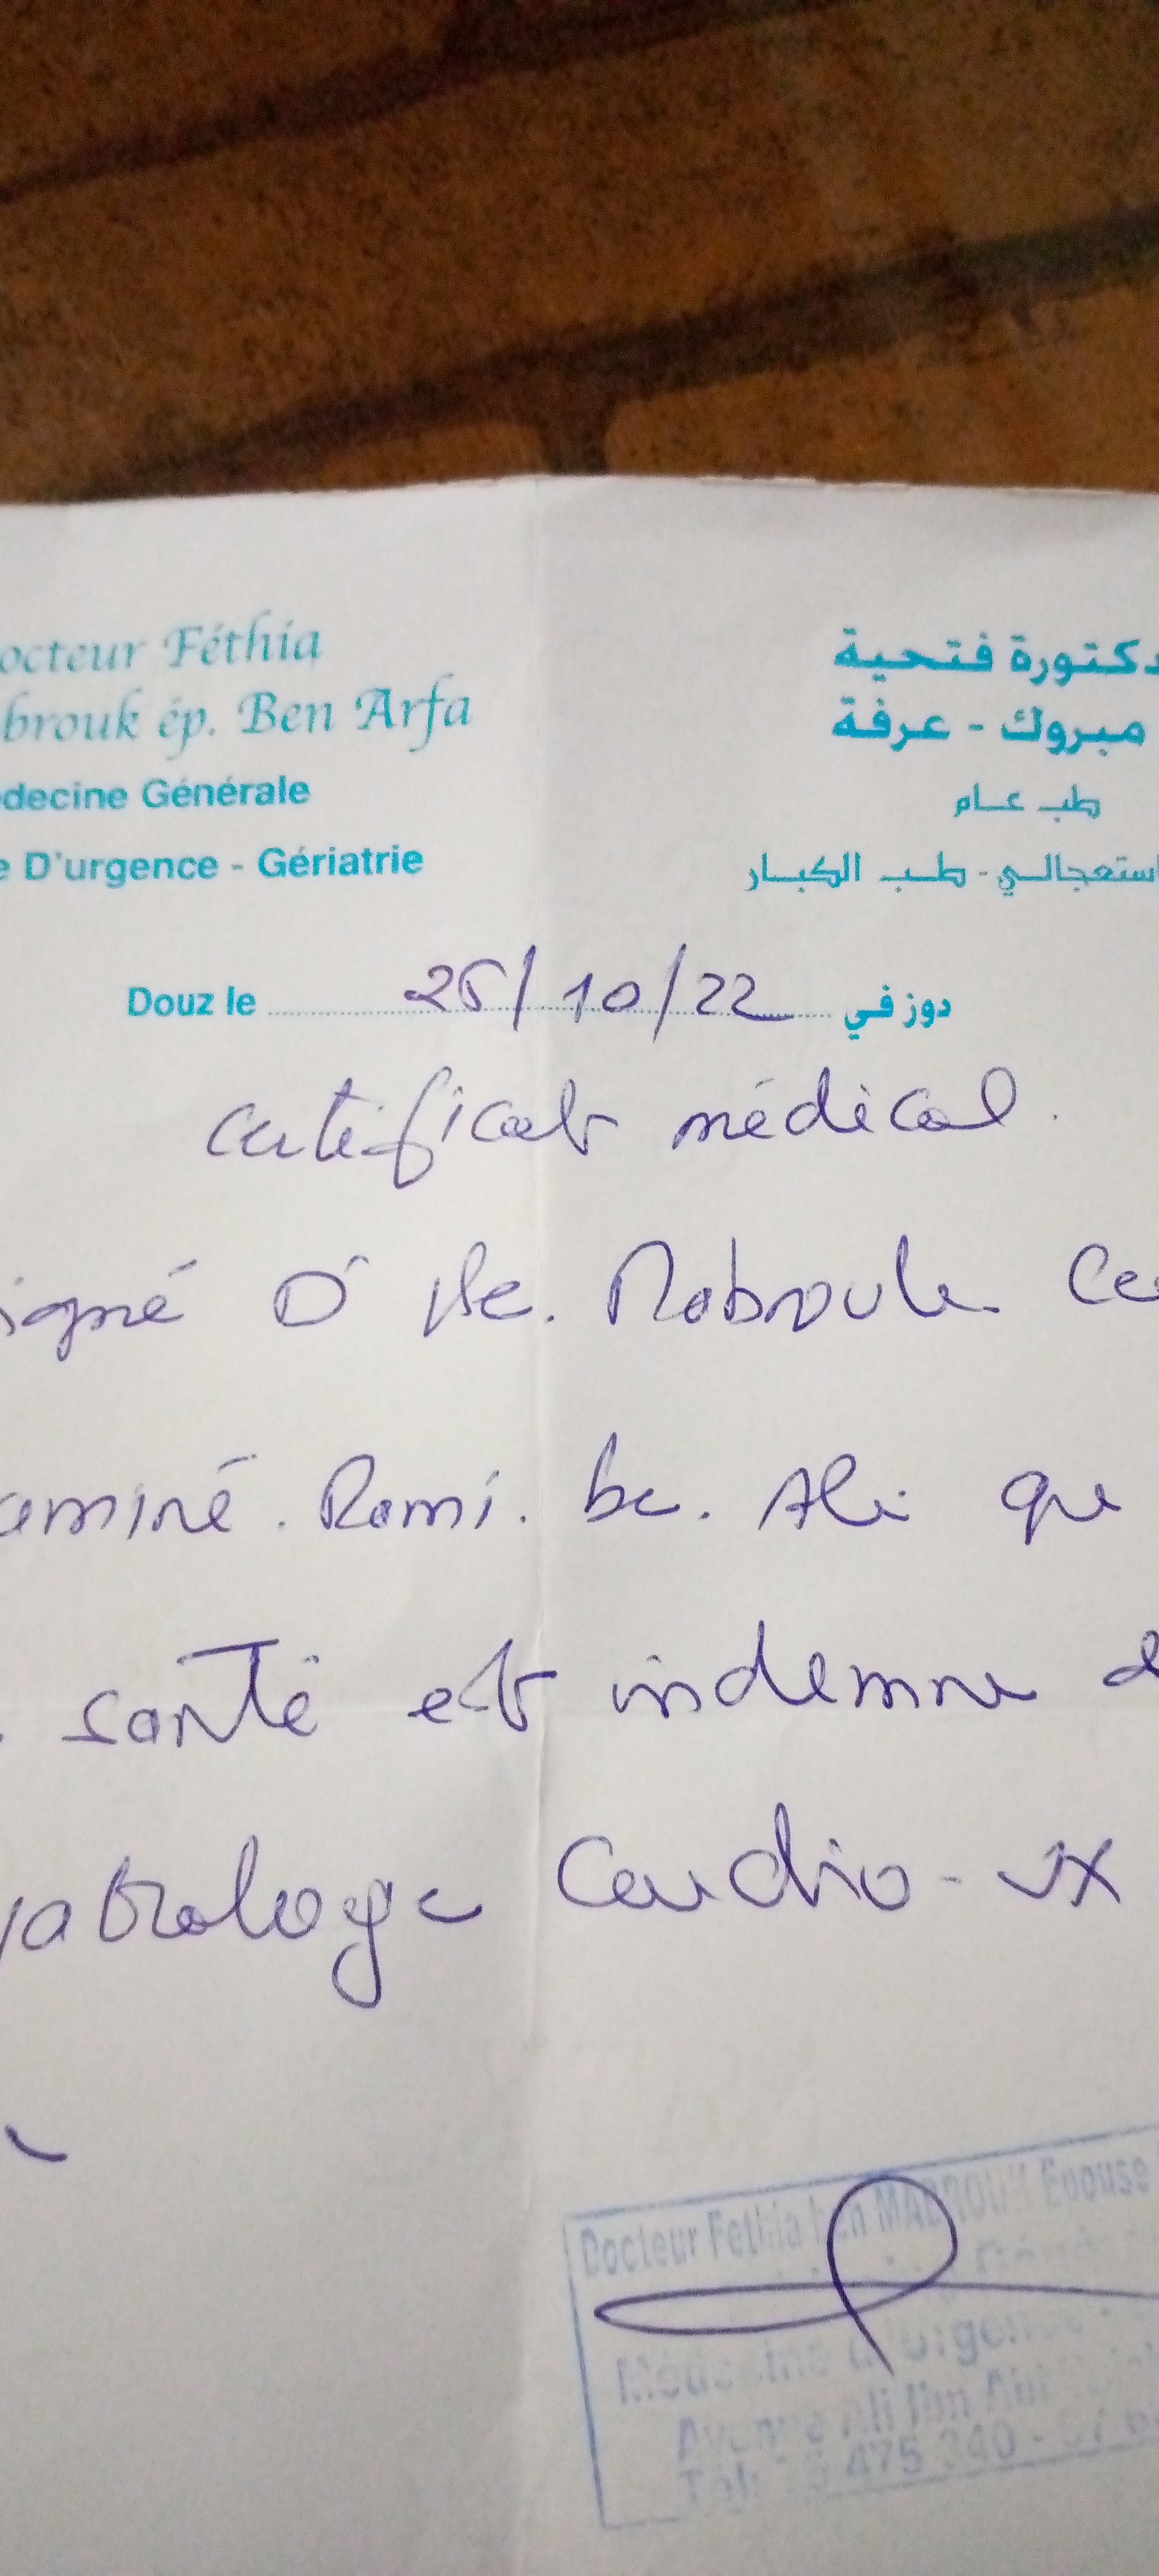 octeur Féthia
brouk ép. Ben Arfa
decine Générale
e D'urgence - Gériatrie
دكتورة فتحية
مبروك - عرفة
طب عام
استعجالي - طب الكبار
Douz le 25/10/22 دوز في
certificat médical.
igné Dr Fle. Mabrouk Ce
aminé. Rami. be. Ali que
santé est indemne d
patologie Cardio-vx
Docteur Fethia ben MABROUK Epouse
Médecine d'Urgen
Avenue Ali Ibn Abi
Tél: 75 475 340 -